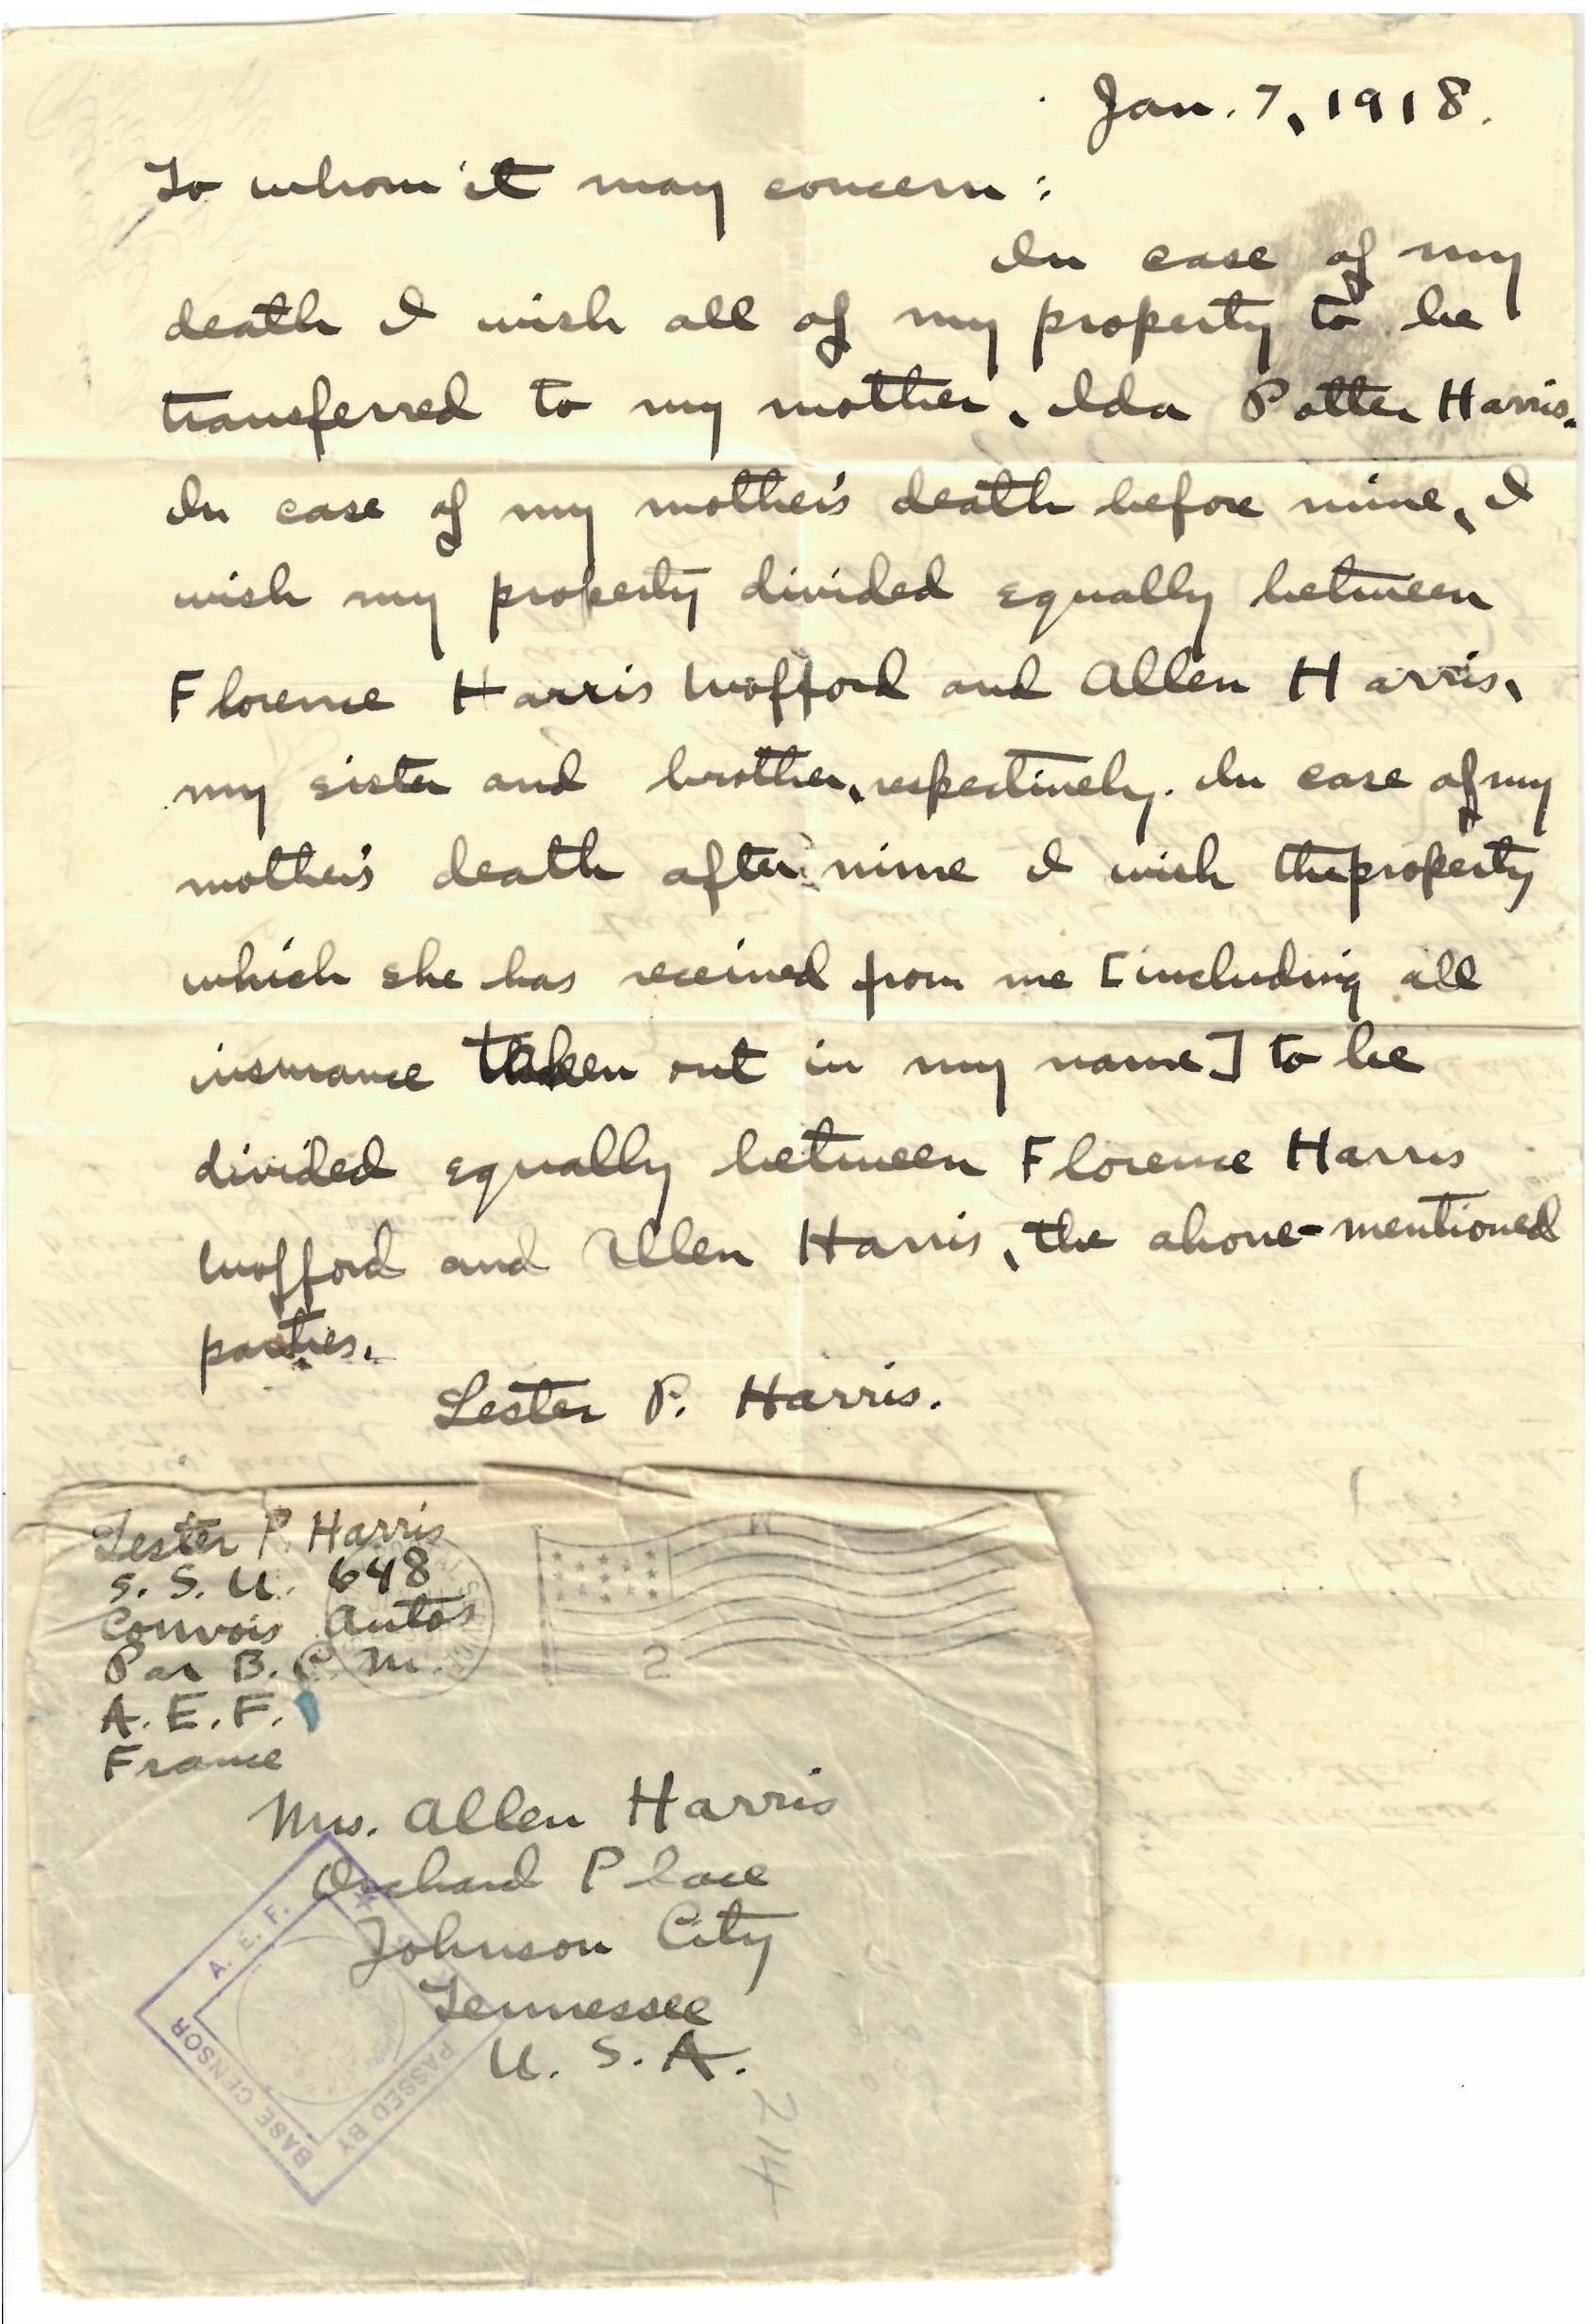 Jan. 7, 1918.
To whom it may concern:
In case of my
death I wish all of my property to be
transferred to my mother, Ida Potter Harris.
In case of my mother's death before mine, I
wish my property divided equally between
Florence Harris Wofford and Allen Harris,
my sister and brother, respectively. In case of my
mother's death after mine I wish the property
which she has received from me [including all
insurance taken out in my name] to be
divided equally between Florence Harris
Wofford and Allen Harris, the above-mentioned
parties.
Lester P. Harris.
Lester P. Harris
S. S. U. 648
Convois Autos
Par B. C. M.
A. E. F.
France
2
Mrs. Allen Harris
Orchard Place
Johnson City
Tennessee
U. S. A.
A. E. F.
PASSED BY
BASE CENSOR
214